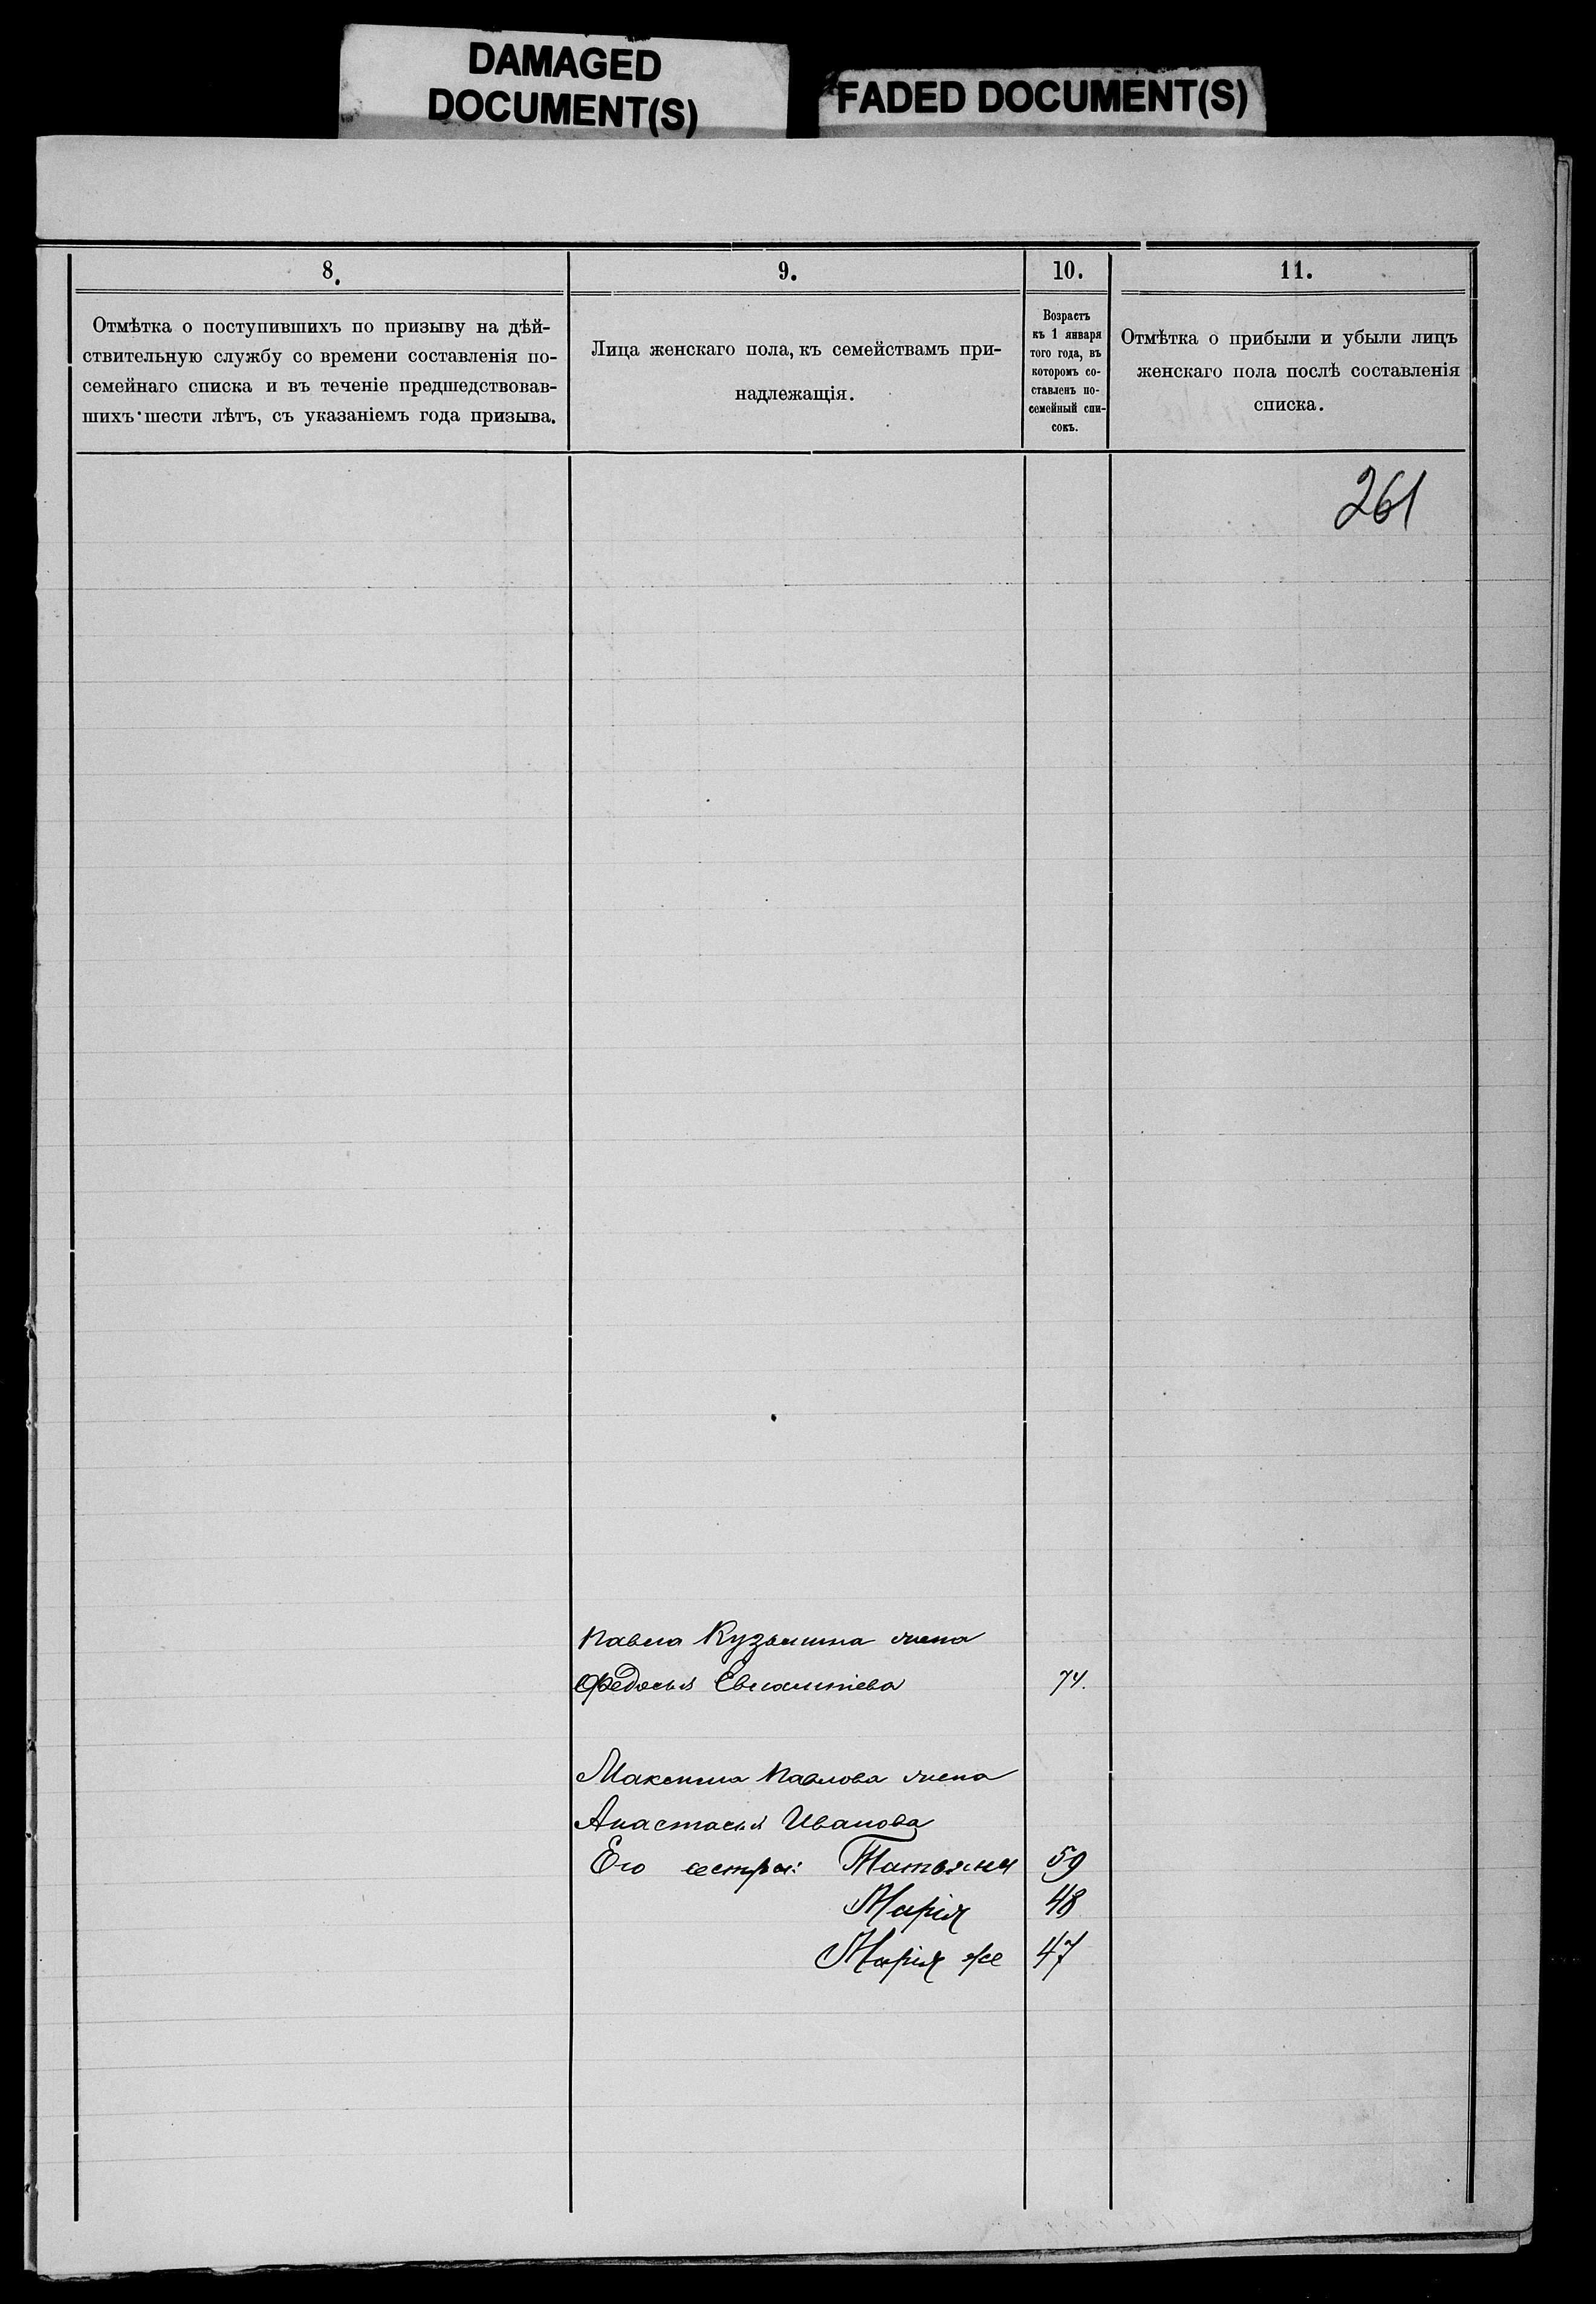 DAMAGED
DOCUMENT(S)
FADED DOCUMENT(S)
8.
Отмѣтка о поступившихъ по призыву на дѣй-
ствительную службу со времени составленія по-
семейнаго списка и въ теченіе предшедствовав-
шихъ шести лѣтъ, съ указаніемъ года призыва.
9.
Лица женскаго пола, къ семействамъ при-
надлежащія.
10.
Возрастъ
къ 1 января
того года, въ
которомъ со-
ставленъ по-
семейный спи-
сокъ.
11.
Отмѣтка о прибыли и убыли лицъ
женскаго пола послѣ составленія
списка.
261
Павла Кузьмина жена
Федосья 74.
Максима Павлова жена
Анастасья Иванова
Его сестры: Татьяна 59
Марія 48
Марія же 47